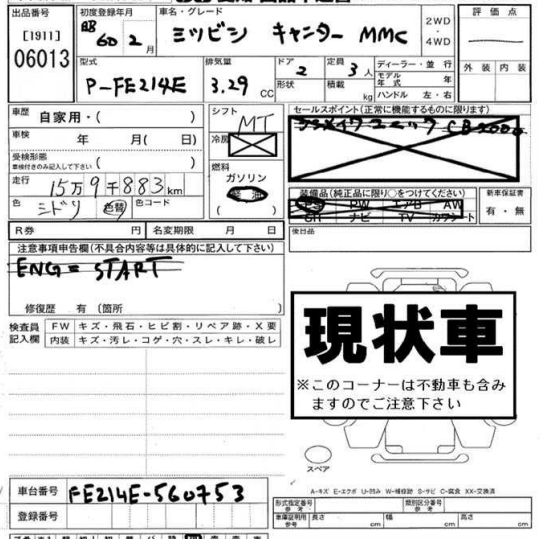 出品番号
[1911]
06013
初度登録年月
昭60年2月
車名・グレード
ミツビシ キャンター MMC
2WD・4WD
評価点
外装 内装
型式
P-FE214E
排気量
3.29 CC
ドア
2
形状
定員
3人
積載
kg
ディーラー・並行
モデル年式 年
ハンドル 左・右
車歴
自家用・( )
車検 年 月( 日)
受検形態
(車検付きのみ記入して下さい)( )
走行 15万9千883km
色 ミドリ 色替 色コード
シフト
MT
冷房
燃料
ガソリン
( )
セールスポイント(正常に機能するものに限ります)
装備品(純正品に限り○をつけてください)
PS PW エアB AW
SR ナビ TV カワシート
新車保証書
有・無
R券 円 名変期限 月 日
後日品
注意事項申告欄(不具合内容等は具体的に記入して下さい)
ENG= START
修復歴 有(箇所 )
検査員記入欄
FW キズ・飛石・ヒビ割・リペア跡・X要
内装 キズ・汚レ・コゲ・穴・スレ・キレ・破レ
現状車
※このコーナーは不動車も含みますのでご注意下さい
スペア
A-キズ E-エクボ U-凹み W-補修跡 S-サビ C-腐食 XX-交換済
車台番号 FE214E-560753
登録番号
形式指定番号 参考
類別区分番号 参考
車庫証明用 参考
長さ cm 幅 cm 高さ cm